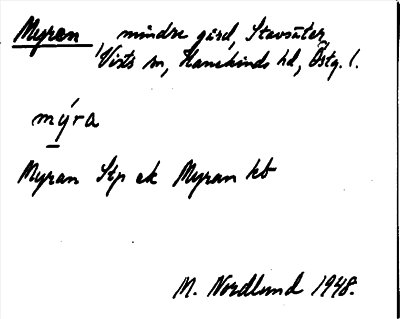 Myran, mindre gård, Stavsäter,
Vists sn, Hanekinds hd, Östg. l.
mýra
Myran Skp ek Myran kb
M. Nordlund 1948.